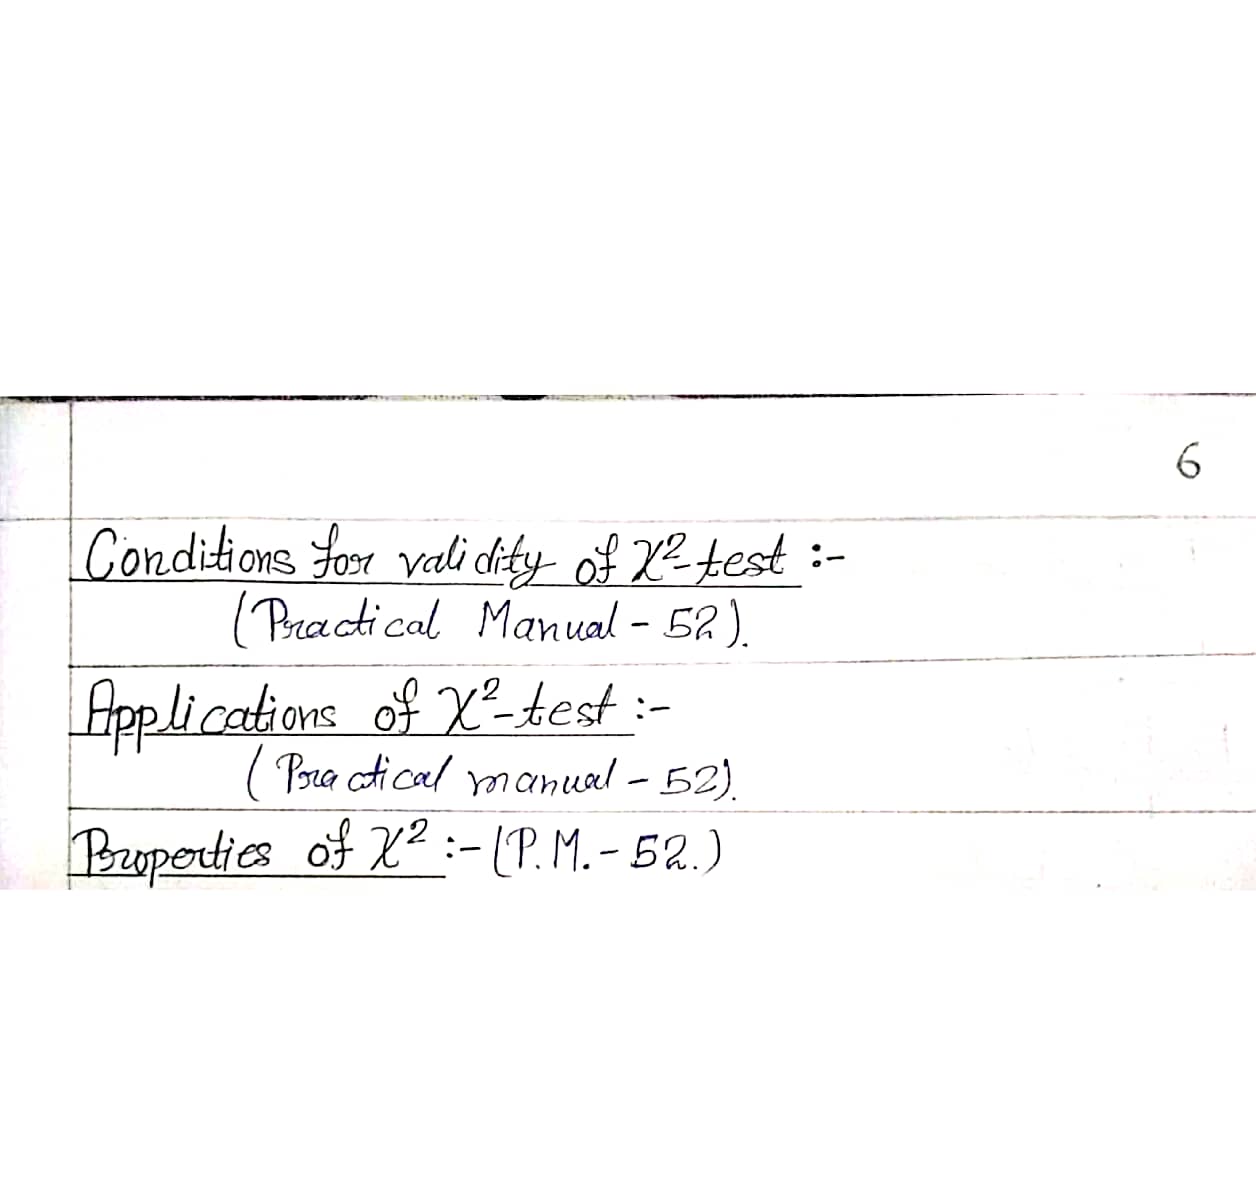 6
Conditions for validity of χ²-test :-
(Practical Manual - 52).
Applications of χ²-test :-
(Practical manual - 52).
Properties of χ² :- (P.M. - 52.)